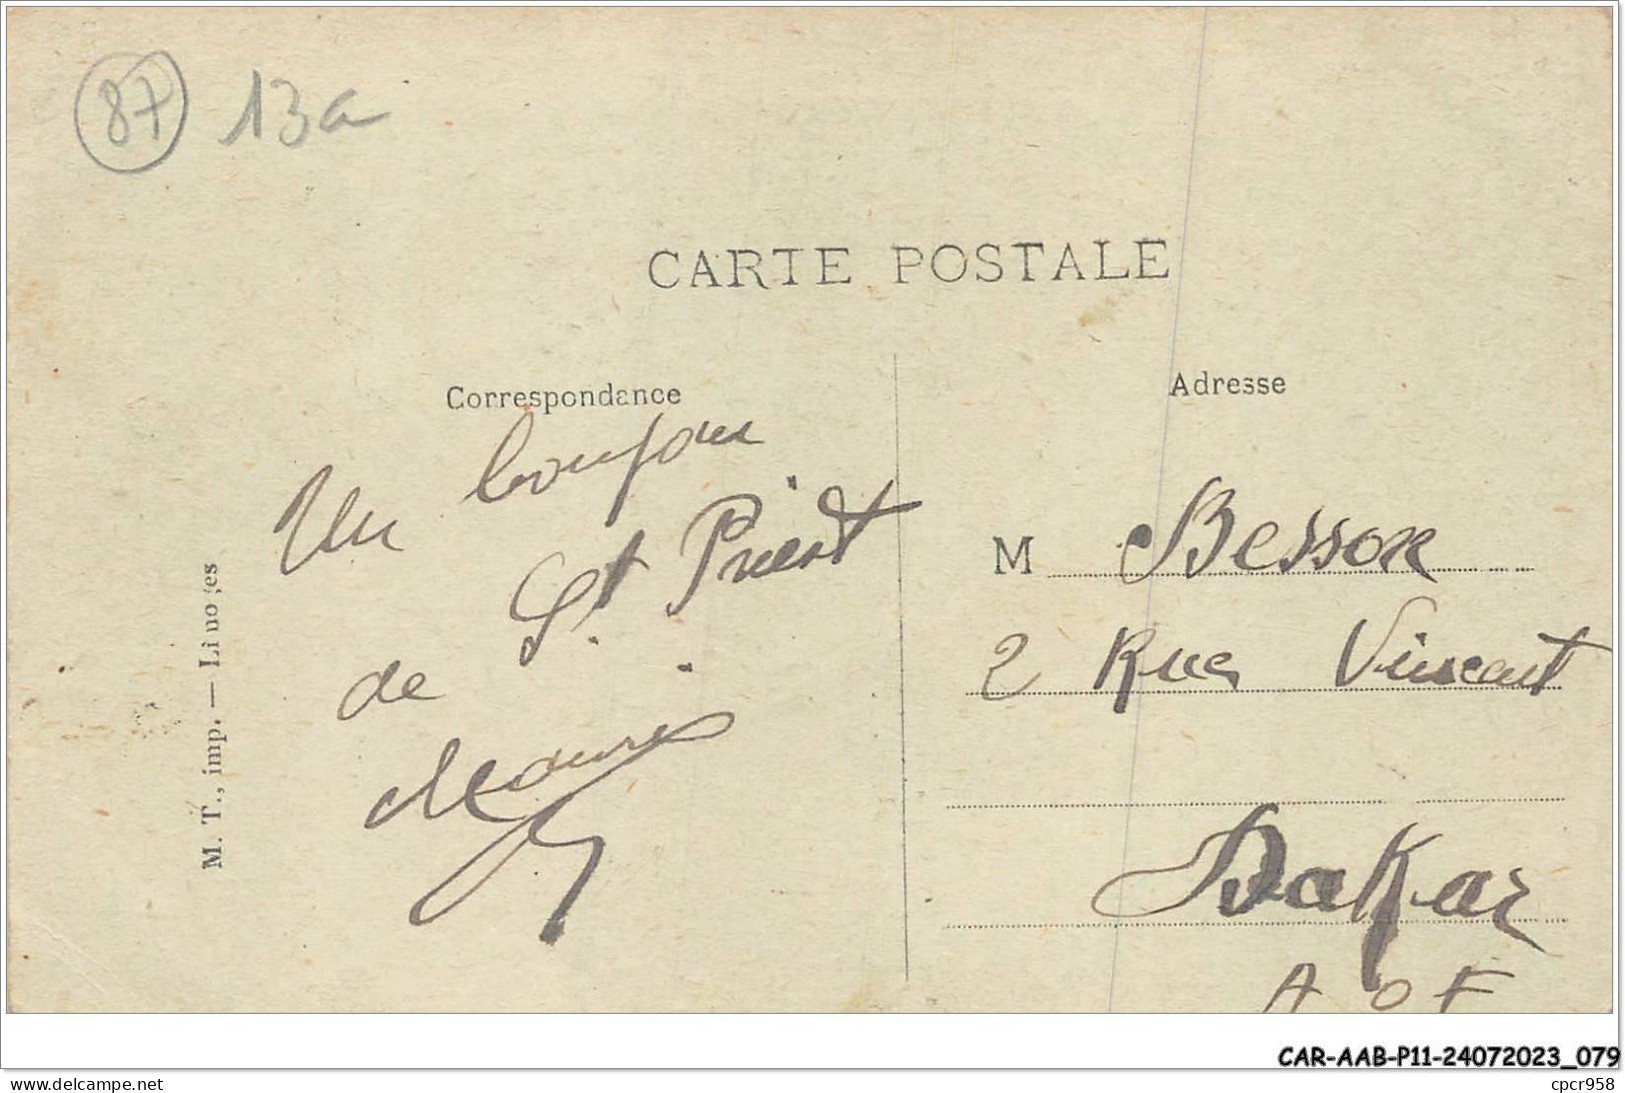 87 13a
CARTE POSTALE
Correspondance
Adresse
Un bonjour
de St Priest
M. T., imp. — Limoges
M Besson
2 Rue Vincent
Dakar
AOF
CAR-AAB-P11-24072023_079
www.delcampe.net
cpcr958